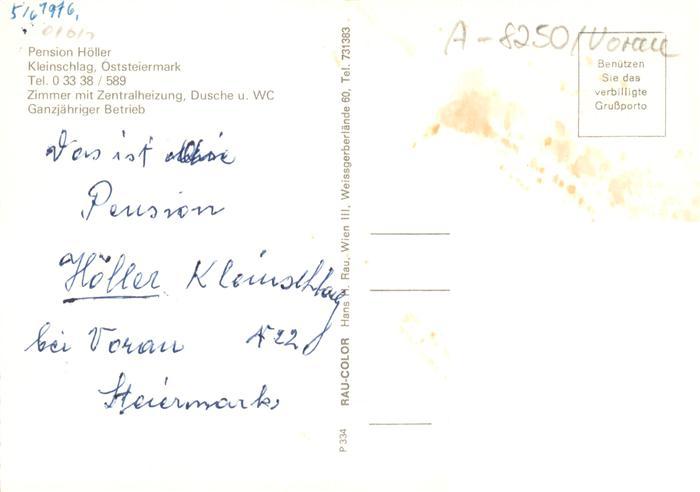 5/6 1976,
A-8250/Vorau
Pension Höller
Kleinschlag, Oststeiermark
Tel. 0 33 38 / 589
Zimmer mit Zentralheizung, Dusche u. WC
Ganzjähriger Betrieb
Das ist
Pension
Höller Kleinschlag
bei Vorau 122
Steiermark
P 334 RAU-COLOR Hans H. Rau, Wien III, Weissgerberlände 60, Tel. 731383
Benützen
Sie das
verbilligte
Grußporto